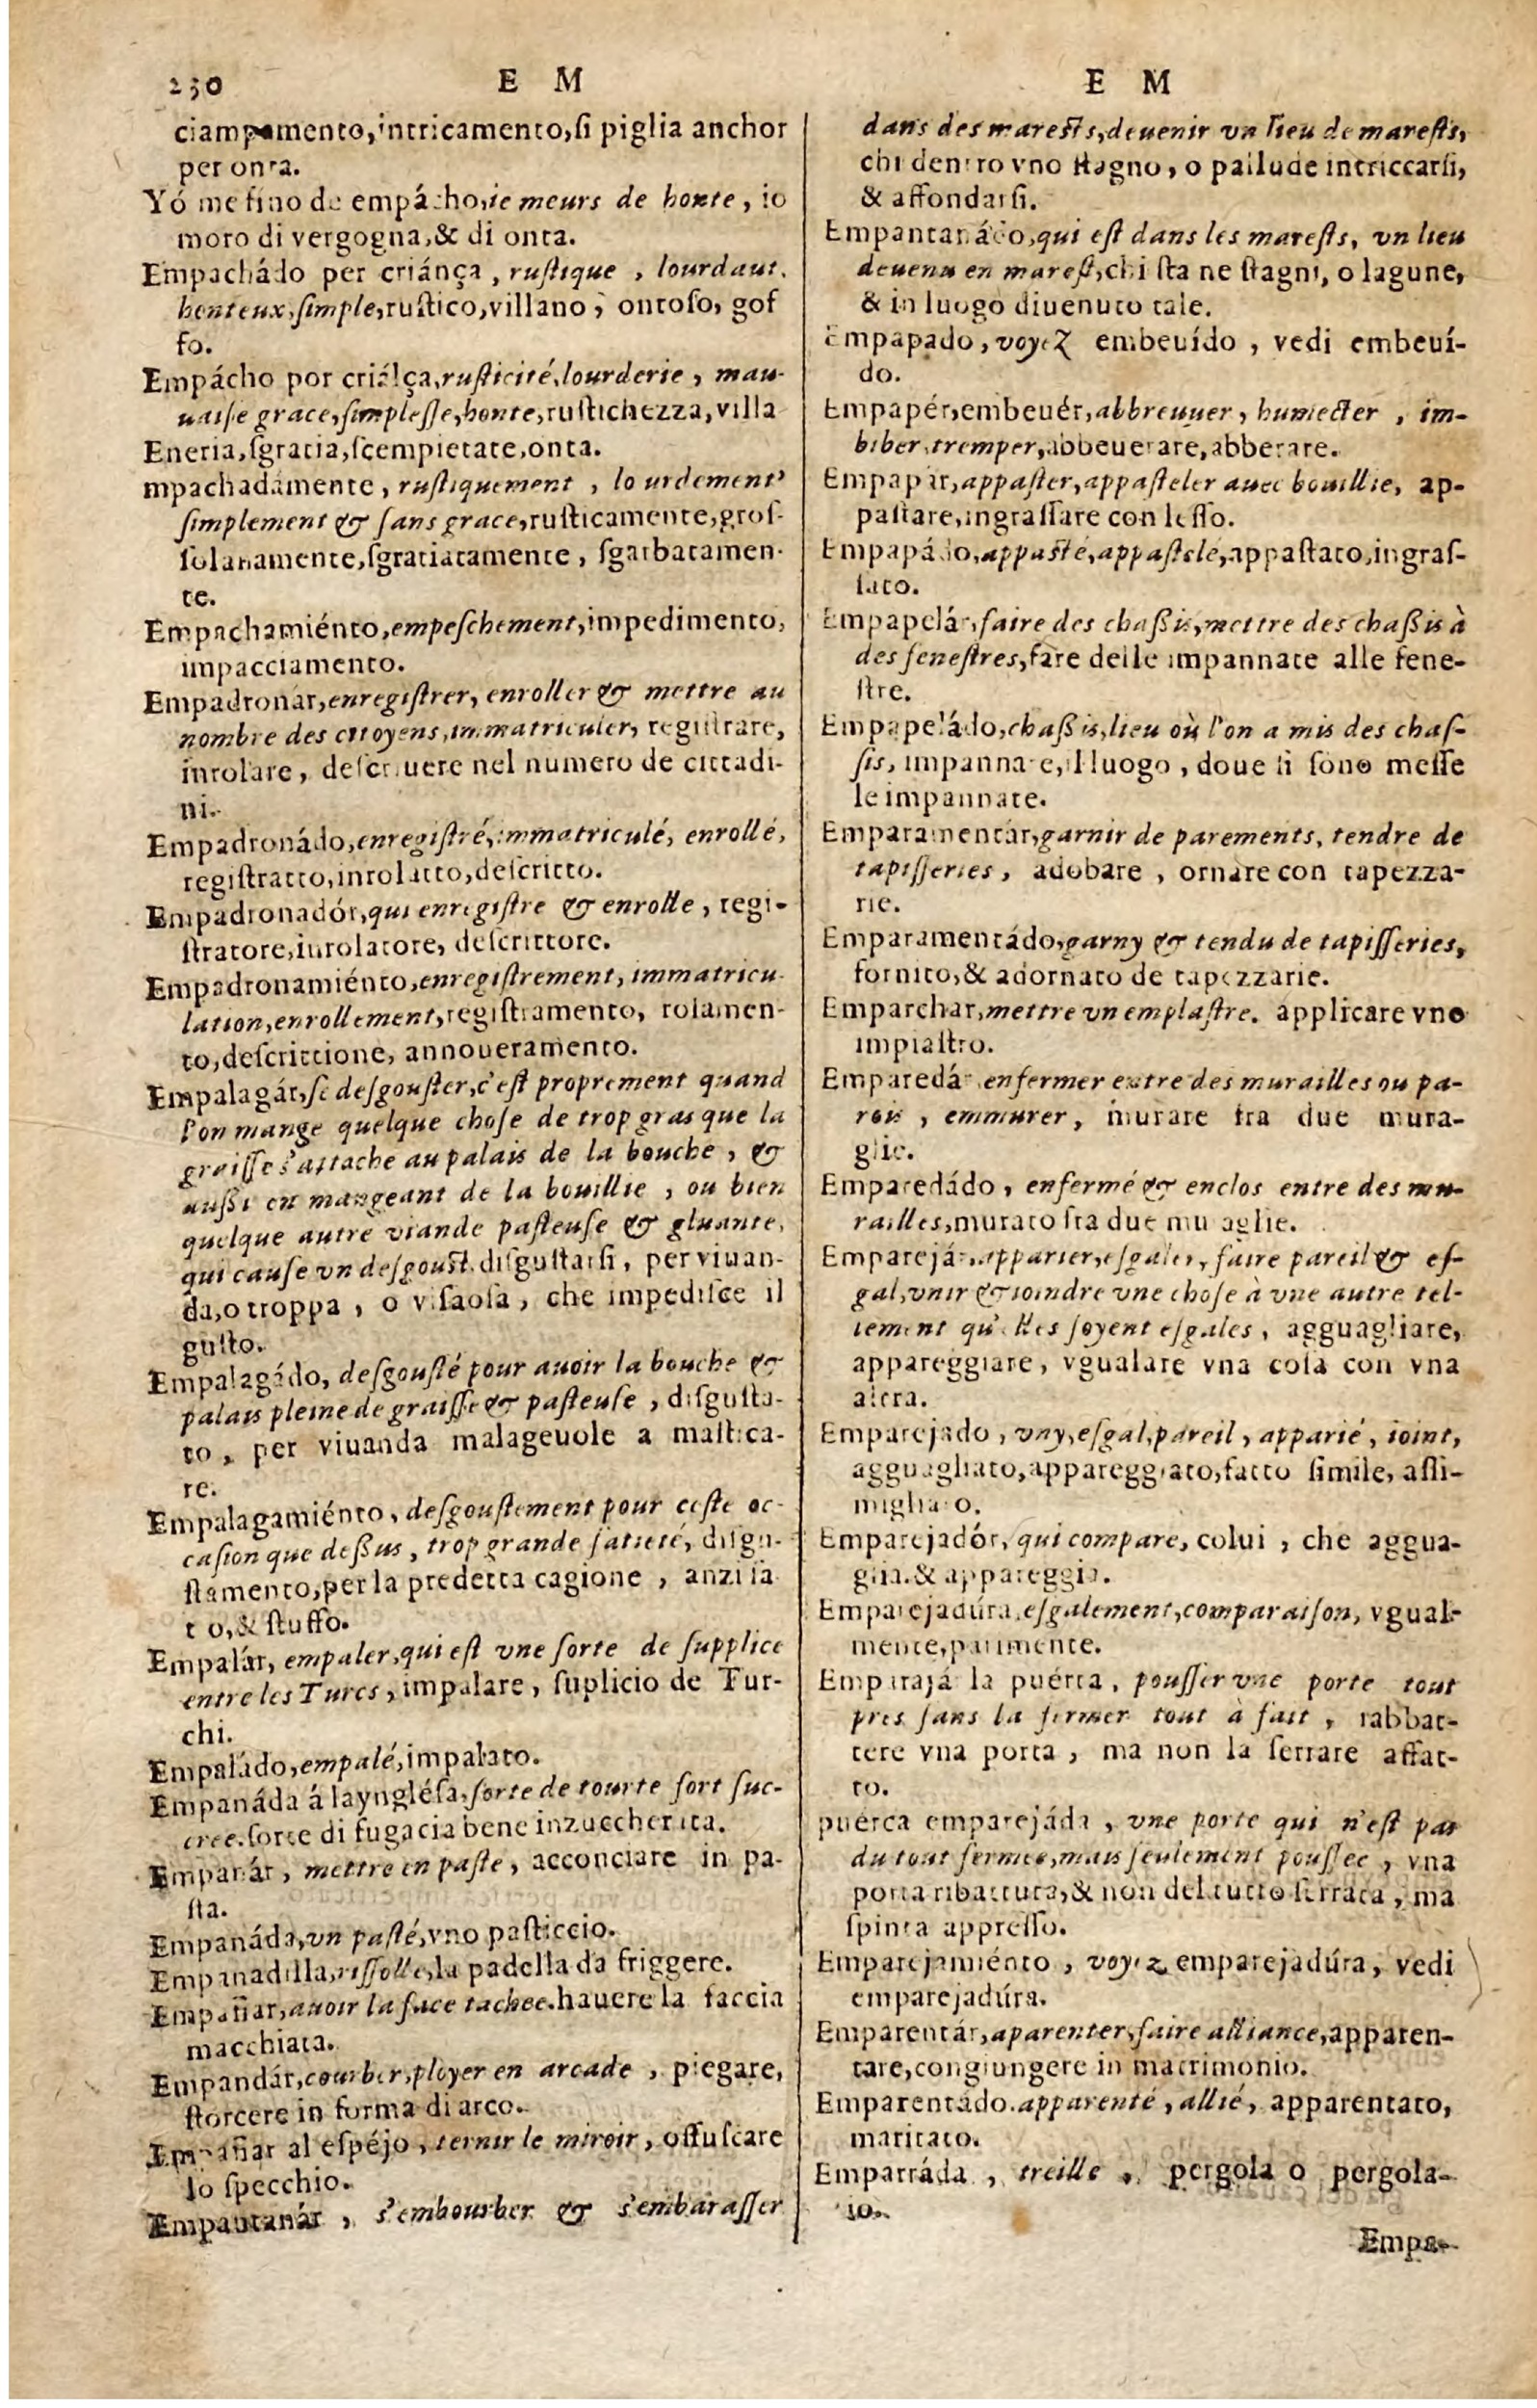 230 E M E M
ciampamento,intricamento,ſi piglia anchor
per onta.
Yó me fino de empácho,ie meurs de honte, io
moro di vergogna,& di onta.
Empachádo per criánça, ruſtique, lourdaut,
honteux,ſimple,ruſtico,villano, ontoſo, gof
fo.
Empácho por criálça,ruſticité,lourderie, mau-
uaiſe grace,ſimpleſſe,honte,ruſtichezza,villa
Eneria,ſgratia,ſcempietate,onta.
mpachadámente, ruſtiquement, lo urdement,
ſimplement & ſans grace,ruſticamente,groſ-
ſolanamente,ſgratiatamente, ſgarbatamen-
te.
Empachamiénto,empeſchement,impedimento,
impacciamento.
Empadronár,enregiſtrer, enroller & mettre au
nombre des citoyens,immatriculer, regiſtrare,
inrolare, deſcriuere nel numero de cittadi-
ni.
Empadronádo,enregiſtré,immatriculé, enrollé,
regiſtratto,inrolatto,deſcritto.
Empadronadór,qui enregiſtre & enrolle, regi-
ſtratore,inrolatore, deſcrittore.
Empadronamiénto,enregiſtrement, immatricu-
lation,enrollement,regiſtramento, rolamen-
to,deſcrittione, annoueramento.
Empalagár,ſe deſgouſter,c'eſt proprement quand
l'on mange quelque choſe de trop gras que la
graiſſe s'attache au palais de la bouche, &
außi en mangeant de la bouillie, ou bien
quelque autre viande paſteuſe & gluante,
qui cauſe vn deſgouſt.diſguſtarſi, per viuan-
da,o troppa, o viſaoſa, che impediſce il
guſto.
Empalagádo, deſgouſté pour auoir la bouche &
palais pleine de graiſſe & paſteuſe, diſguſta-
to, per viuanda malageuole a maſtica-
re.
Empalagamiénto, deſgouſtement pour ceſte oc-
caſion que deßus, trop grande ſatieté, diſgu-
ſtamento,per la predetta cagione, anzi ſa
t o,& ſtuffo.
Empalár, empaler,qui eſt vne ſorte de ſupplice
entre les Turcs, impalare, ſuplicio de Tur-
chi.
Empaládo,empalé,impalato.
Empanáda á la yngléſa,ſorte de tourte fort ſuc-
cree.ſorte di fugacia bene inzuccherata.
Empanár, mettre en paſte, acconciare in pa-
ſta.
Empanáda,vn paſté,vno paſticcio.
Empanadilla,riſſolle,la padella da friggere.
Empañar,auoir la face tachee.hauere la faccia
macchiata.
Empandár,courber,ployer en arcade, piegare,
ſtorcere in forma di arco.
Empañar al eſpéjo, ternir le miroir, offuſcare
lo ſpecchio.
Empantanár, s'embourber & s'embaraſſer
dans des mareſts,deuenir vn lieu de mareſts,
chi dentro vno ſtagno, o pallude intriccarſi,
& affondarſi.
Empantanádo,qui eſt dans les mareſts, vn lieu
deuenu en mareſt,chi ſta ne ſtagni, o lagune,
& in luogo diuenuto tale.
Empapado, voyez embeuído, vedi embeuí-
do.
Empapér,embeuér,abbreuuer, humecter, im-
biber,tremper,abbeuerare,abberare.
Empapár,appaſter,appaſteler auec bouillie, ap-
paſtare,ingraſſare con leſſo.
Empapádo,appaſté,appaſtelé,appaſtato,ingraſ-
ſato.
Empapelár,faire des chaßis,mettre des chaßis à
des feneſtres,fare delle impannate alle fene-
ſtre.
Empapeládo,chaßis,lieu où l'on a mis des chaſ-
ſis, impannate,il luogo, doue ſi ſono meſſe
le impannate.
Emparamentár,garnir de parements, tendre de
tapiſſeries, adobare, ornare con tapezza-
rie.
Emparamentádo,garny & tendu de tapiſſeries,
fornito,& adornato de tapezzarie.
Emparchar,mettre vn emplaſtre. applicare vno
impiaſtro.
Emparedár enfermer entre des murailles ou pa-
rois, emmurer, murare tra due mura-
glie.
Emparedádo, enfermé & enclos entre des mu-
railles,murato fra due mu aglie.
Emparejár,apparier,eſgaler, faire pareil & eſ-
gal,vnir & ioindre vne choſe à vne autre tel-
lement qu'elles ſoyent eſgales, agguagliare,
appareggiare, vgualare vna coſa con vna
altra.
Emparejado, vny,eſgal,pareil, apparié, ioint,
agguagliato,appareggiato,fatto ſimile, aſſi-
migliato.
Emparejadór, qui compare, colui, che aggua-
glia.& appareggia.
Emparejadúra,eſgalement,comparaiſon, vgual-
mente,parimente.
Emparajá la puérta, pouſſer vne porte tout
pres ſans la fermer tout à fait, rabbat-
tere vna porta, ma non la ſerrare affat-
to.
puérca emparejáda, vne porte qui n'eſt pas
du tout fermee,mais ſeulement pouſſee, vna
porta ribattuta,& non del tutto ſerrata, ma
ſpinta appreſſo.
Emparejamiénto, voyez emparejadúra, vedi
emparejadúra.
Emparentár,aparenter,faire alliance,apparen-
tare,congiungere in matrimonio.
Emparentádo.apparenté, allié, apparentato,
maritato.
Emparráda, treille, pergola o pergola-
io.
Empa-